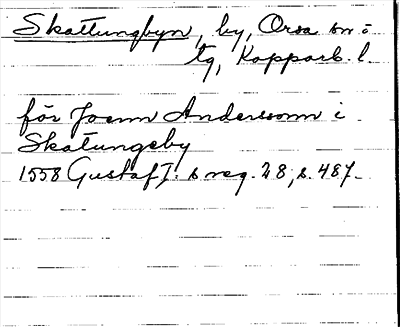 Skattungbyn, by, Orsa sn o
tg, Kopparb. l.
för Joenn Anderssonn i
Skatungeby
1558 Gustaf I:s reg. 28, s. 487.